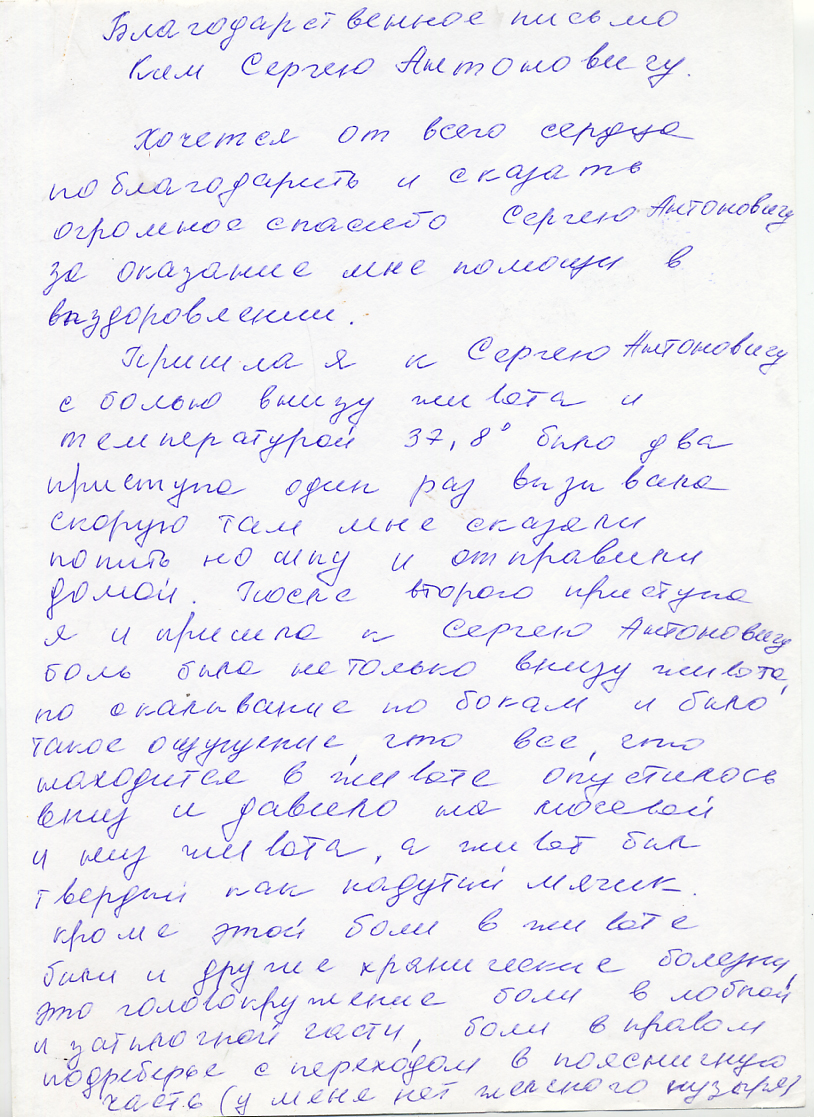 Благодарственное письмо
Ким Сергею Антоновичу.
Хочется от всего сердца
поблагодарить и сказать
огромное спасибо Сергею Антоновичу
за оказание мне помощи в
выздоровлении.
Пришла я к Сергею Антоновичу
с болью внизу живота и
температурой 37,8° было два
приступа один раз визивала
скорую там мне сказали
попить ношпу и отправили
домой. После второго приступа
я и пришла к Сергею Антоновичу
боль была нетолько внизу живота,
но скалывание по бокам и было
такое ощущение, что все, что
находится в животе опустилось
вниз и давило на мочевой
и низ живота, а живот был
твердый как надутый мячик.
кроме этой боли в животе
были и другие хранические болезни,
это головокружение боли в лобной
и затылочной части, боли в правом
подреберье с переходом в поясничную
часть (у меня нет желчного пузыря)